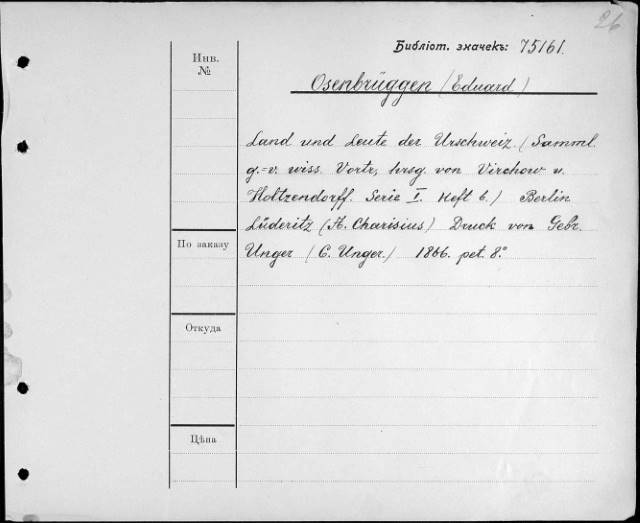 26
Библіот. значекъ: 75161.
Инв.
№
Osenbrüggen (Eduard)
Land und Leute der Urschweiz. (Samml.
g.=v. wiss. Vortr., hrsg. von Virchow u.
Holtzendorff. Serie I. Heft 6.) Berlin
Lüderitz (A. Charisius) Druck von Gebr.
Unger (C. Unger.) 1866. pet. 8.°
По заказу
Откуда
Цѣна